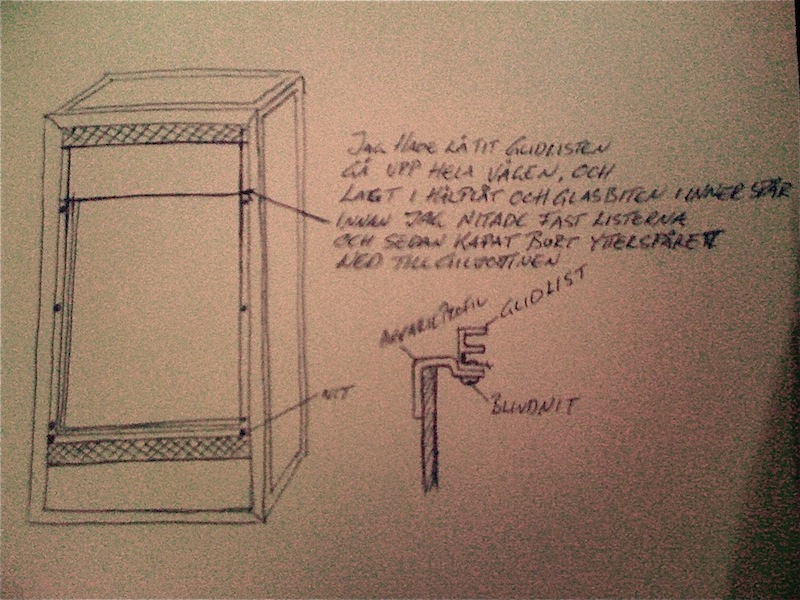 JAG HADE LÅTIT GLIDLISTEN
GÅ UPP HELA VÄGEN, OCH
LAGT I HÅLPLÅT OCH GLASBITEN I INNER SPÅR
INNAN JAG NITADE FAST LISTERNA
OCH SEDAN KAPAT BORT YTTERSPÅRET
NED TILL GILLIOTINEN
AKVARIEPROFIL
GLIDLIST
NIT
BLINDNIT